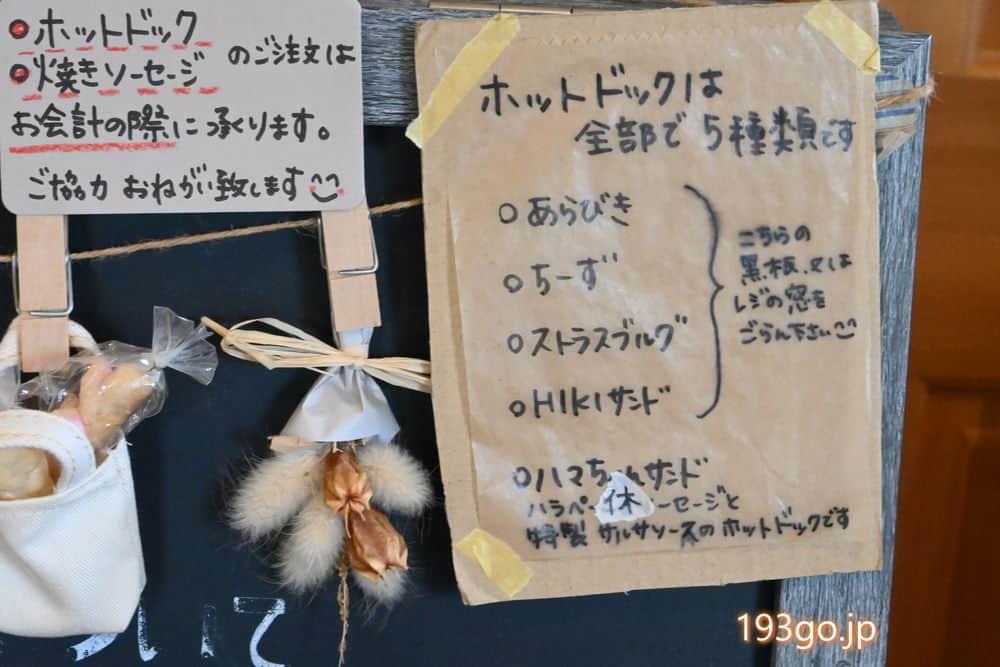 ●ホットドック
●焼きソーセージ のご注文は
お会計の際に承ります。
ご協力 おねがい致します
ホットドックは
全部で 5種類です
○あらびき
○ちーず
○ストラスブルグ
○HIKIサンド
こちらの
黒板、又は
レジの窓を
ごらん下さい
○ハマちゃんサンド
ハラペ 休 ーセージと
特製 サルサソースのホットドックです
ついて
193go.jp